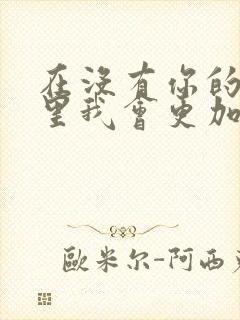 在沒有你的
里我會更加
歐米尔-阿西